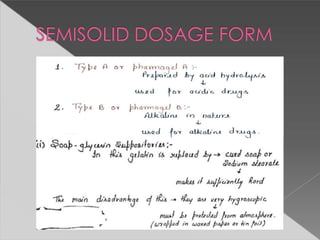 SEMISOLID DOSAGE FORM
1. Type A or pharmagel A :-
Prepared by acid hydrolysis
↓
used for acidic drugs.
2. Type B or pharmagel B :-
Alkaline in nature
↓
used for alkaline drugs.
(ii) Soap-glycerin Suppositories :-
In this gelatin is replaced by → curd soap or
Sodium stearate
↓
makes it sufficiently hard
The main disadvantage of this → they are very hygroscopic
↓
must be protected from atmosphere.
(wrapped in waxed paper or tin foil)